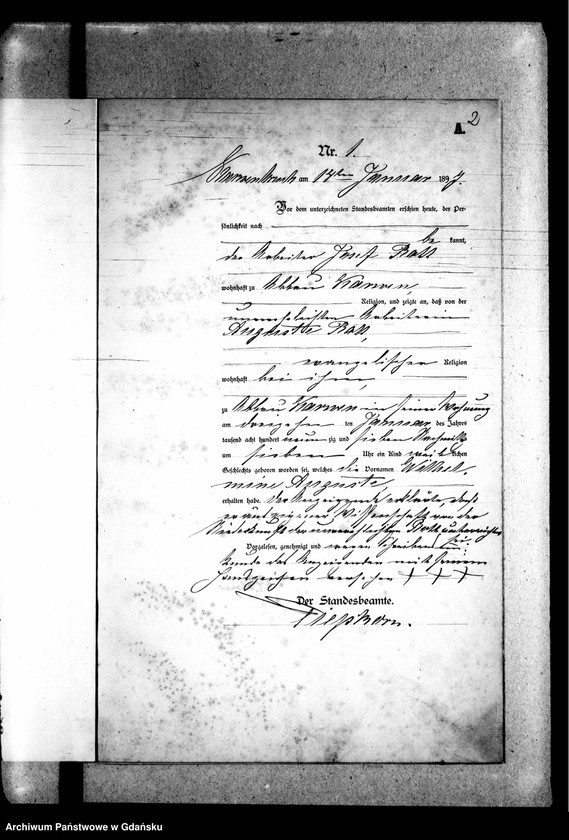 2
A.
Nr. 1.
am 14ten Januar 1897.
Vor dem unterzeichneten Standesbeamten erschien heute, der Per-
sönlichkeit nach
be kannt,
der Arbeiter Josef
wohnhaft zu Abbau Karwen,
Religion, und zeigte an, daß von der
unverehelichten Arbeiterin
Auguste
evangelischer Religion
wohnhaft bei ihm,
zu Abbau Karwen in seiner Wohnung
am dreizehnten Januar des Jahres
tausend acht hundert neunzig und sieben Nachmittags
um sieben Uhr ein Kind weiblichen
Geschlechts geboren worden sei, welches die Vornamen Wilhel-
mine Auguste,
erhalten habe. Der Anzeigende erklärte, daß
er aus eigener Wissenschaft von der
Niederkunft der unverehelichten unterrichtet
sei.
Vorgelesen, genehmigt und wegen Schreibensun-
kunde des Anzeigenden mit seinem
Handzeichen versehen + + +
Der Standesbeamte.
Archiwum Państwowe w Gdańsku